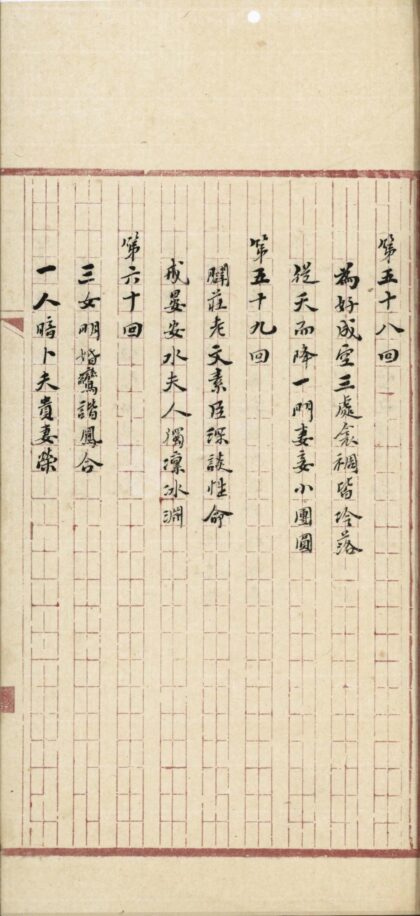 第五十八回
為好成空三處衾裯皆冷落
從天而降一門妻妾小團圓
第五十九回
闢莊老文素臣深談性命
戒晏安水夫人獨凜冰淵
第六十回
三女明婚鸞諧鳳合
一人暗卜夫貴妻榮